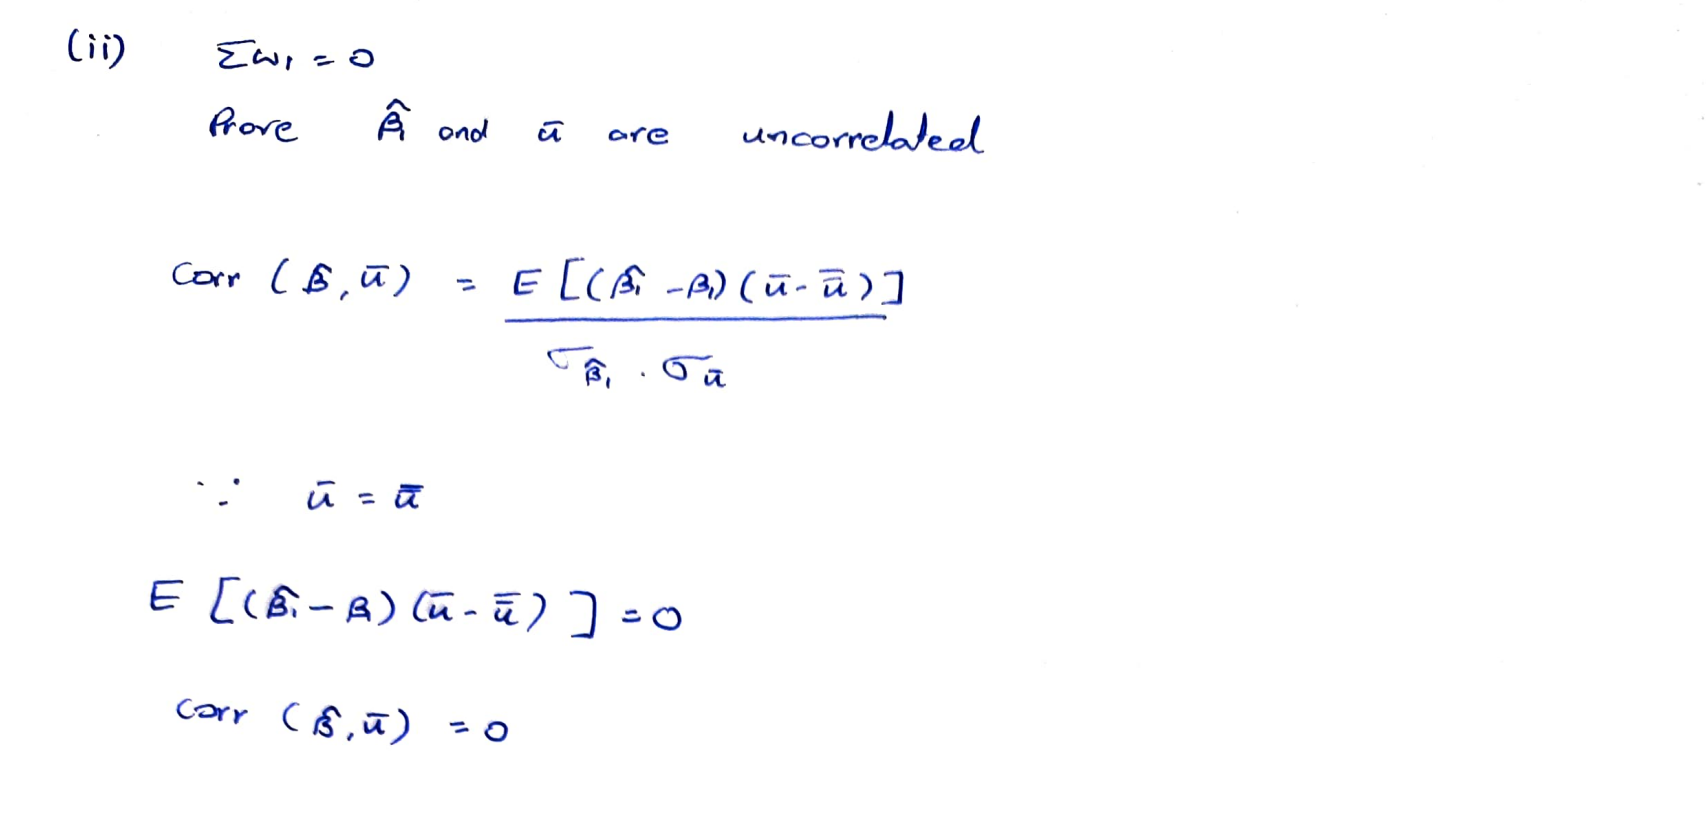 (ii) Σw₁ = 0
Prove β̂₁ and ū are uncorrelated
Corr (β̂, ū) = E [(β̂₁ - β₁) (ū - ū̄)]
σβ̂₁ . σū
∵ ū = ū̄
E [(β̂₁ - β₁) (ū - ū̄)] = 0
Corr (β̂, ū) = 0